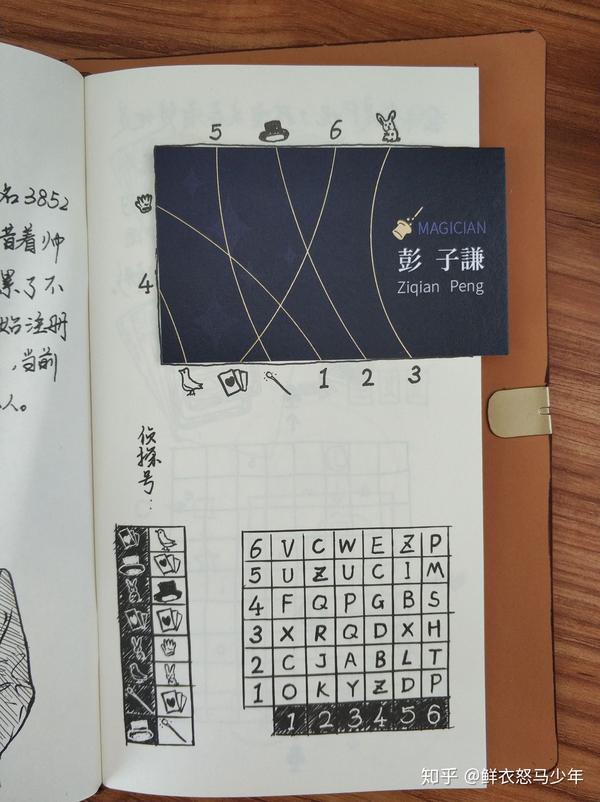 名3852
昔着帅
累了不
始注册
,当前
人。
5 6
4
MAGICIAN
彭 子謙
Ziqian Peng
1 2 3
侦探号：
6 V C W E Z P
5 U Z U C I M
4 F Q P G B S
3 X R Q D X H
2 C J A B L T
1 O K Y Z D P
1 2 3 4 5 6
知乎 @鲜衣怒马少年